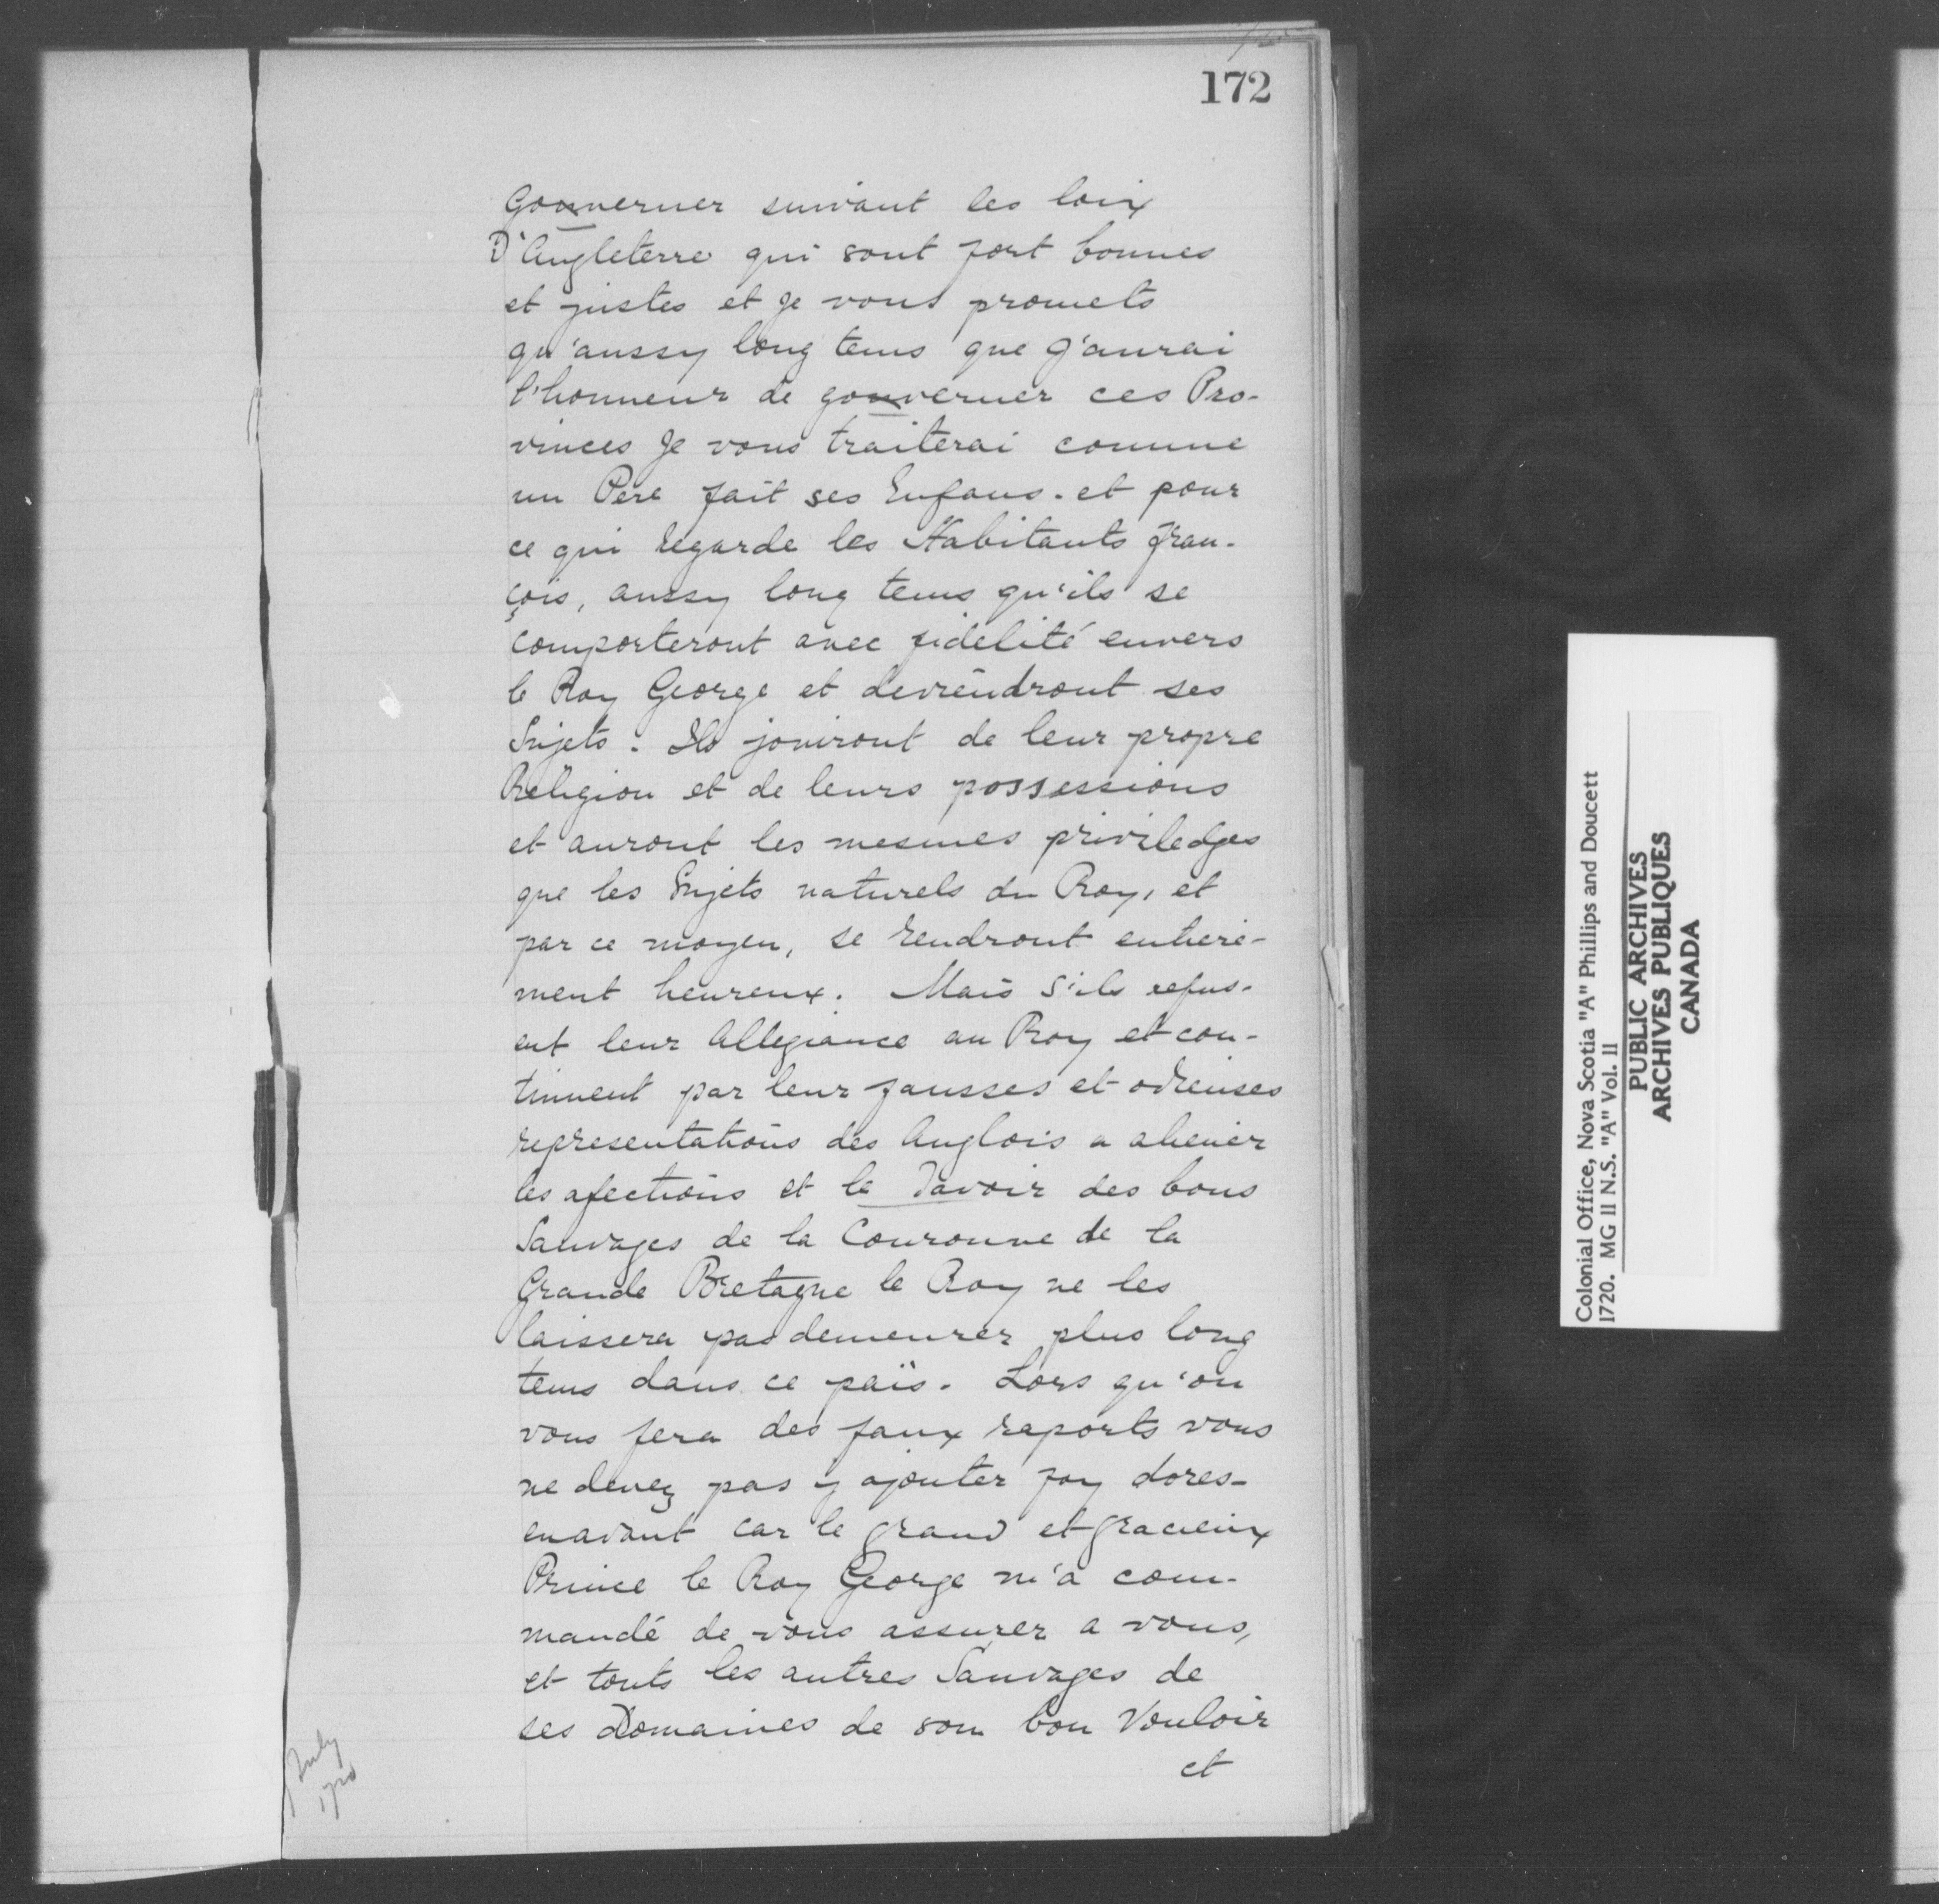 172
Gouverner suivant les loix
D'Angleterre qui sont fort bonnes
et justes et Je vous promets
qu'aussy long tems que J'aurai
l'honneur de gouverner ces Pro-
vinces Je vous traiterai comme
un Pere fait ses Enfans. et pour
ce qui regarde les Habitants Fran-
çois, aussy long tems qu'ils se
comporteront avec fidelité envers
le Roy George et deviendront ses
Sujets. Ils jouiront de leur propre
Religion et de leurs possessions
et auront les mesmes priviledges
que les Sujets naturels du Roy, et
par ce moyen, se rendront entiere-
ment heureux. Mais S'ils refus-
ent leur Allegiance au Roy et con-
tinuent par leur fausses et odieuses
representations des Anglois a aliener
les afections et le Davoir des bons
Sauvages de la Couronne de la
Grande Bretagne le Roy ne les
laissera pas demeurer plus long
tems dans ce païs. Lors qu'on
vous fera des faux raports vous
ne devez pas y ajouter foy dores-
enavant car le grand et gracieux
Prince le Roy George m'a com-
mandé de vous assurer a vous,
et touts les autres Sauvages de
ses Domaines de son bon Vouloir
et
July
1720
Colonial Office, Nova Scotia "A" Phillips and Doucett
1720. MG 11 N.S. "A" Vol. 11
PUBLIC ARCHIVES
ARCHIVES PUBLIQUES
CANADA